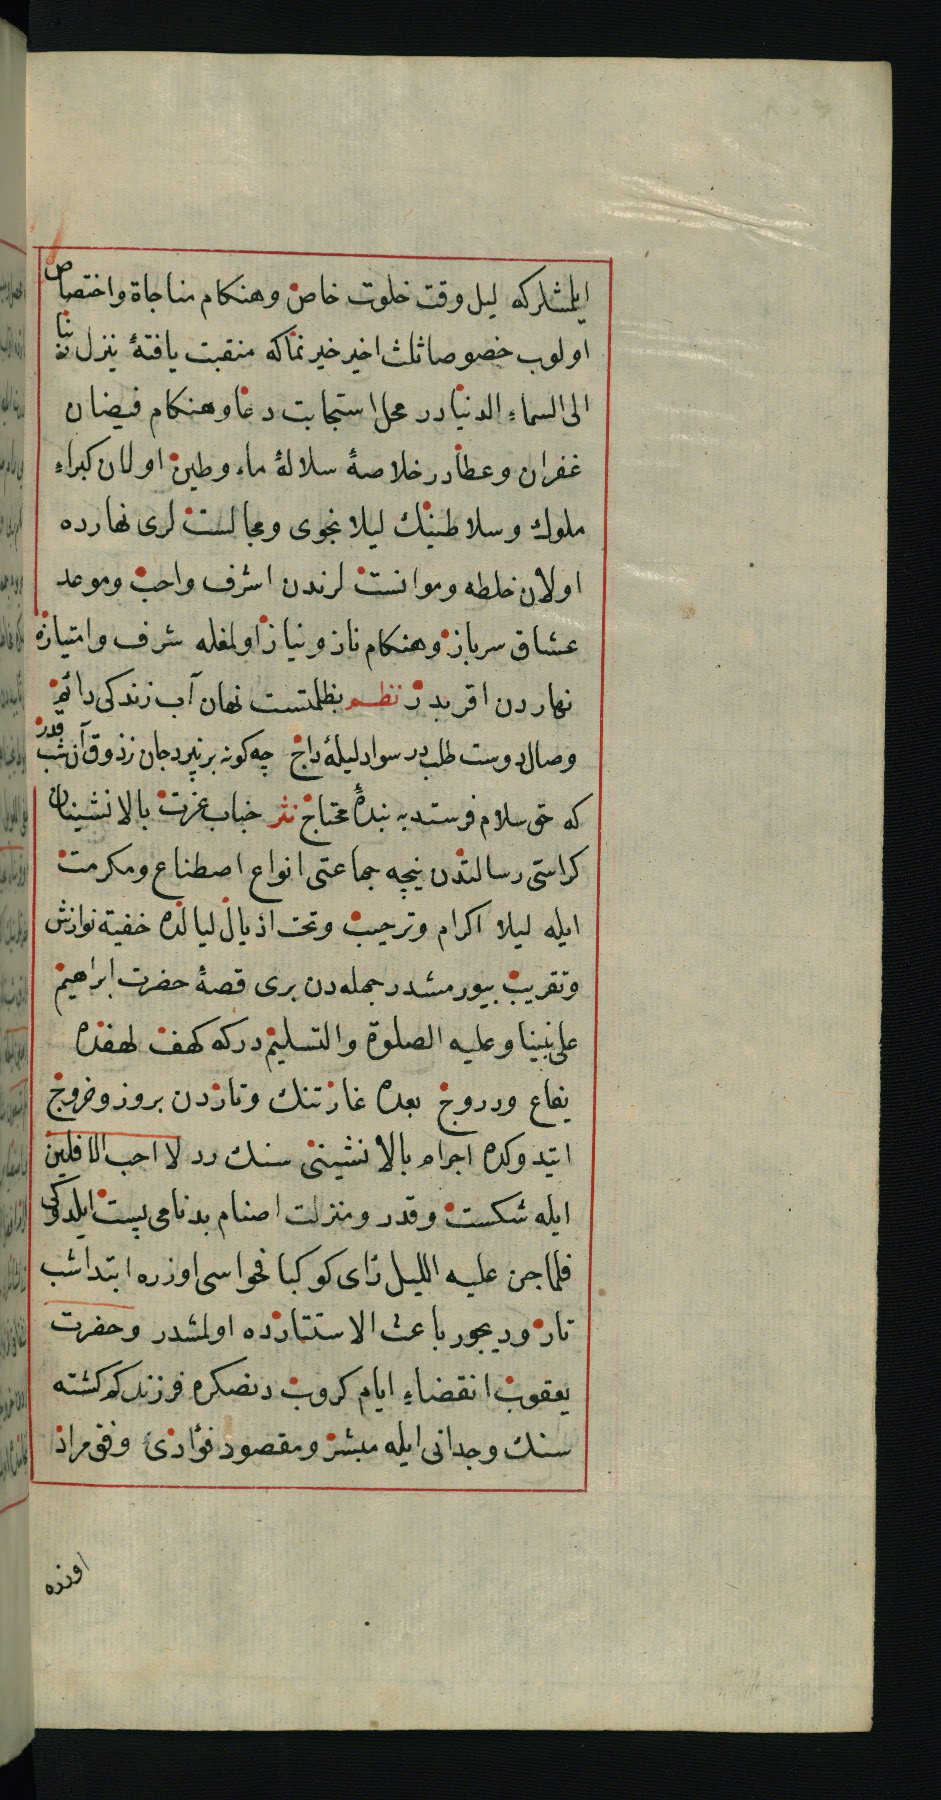 ایلمشلر که لیل وقت خلوت خاص وهنکام مناجاة واختصاص
اولوب خصوصا ثلث اخیر خیر نماکه منقبت یافتهٔ ینزل ربنا
الی السماء الدنیا در محل استجابت دعا وهنکام فیضان
غفران وعطادر خلاصهٔ سلالهٔ ماء وطین اولان کبراء
ملوك وسلاطینك لیلا نجوی ومجالست لری نهارده
اولان خلطه وموانست لرندن اشرف واحب وموعد
عشاق سرباز وهنکام ناز ونیاز اولمغله شرف وامتیازه
نهاردن اقربدر نظم بظلمتست نهان آب زندکی دائم
وصال دوست طلب در سواد لیلهٔ داج چه کونه برنپرد جان ز ذوق آن شب قدر
که حق سلام فرستد به بندهٔ محتاج نثر جناب عزت بالانشینان
کراسئ رسالتدن نیچه جماعتی انواع اصطناع ومکرمت
ایله لیلا اکرام وترحیب وتحت اذیال لیالده خفیة نوازش
وتقریب بیورمشدر جمله دن بری قصهٔ حضرت ابراهیم
علی نبینا وعلیه الصلوة والتسلیم در که کهف لهفده
یفاع ودروج بعده غار تنك وتاردن بروز وخروج
ایتدوکده اجرام بالانشیننی سنك رد لا احب الافلین
ایله شکست وقدر ومنزلت اصنام بدنامی پست ایلدوکی
فلما جن علیه اللیل رای کوکبا فحواسی اوزره ابتدا شب
تار ودیجور باعث الاستتارده اولمشدر وحضرت
یعقوب انقضاء ایام کروب دنصکره فرزند کم کشته
سنك وجدانی ایله مبشر ومقصود فؤادی وفق مراد
اوزره